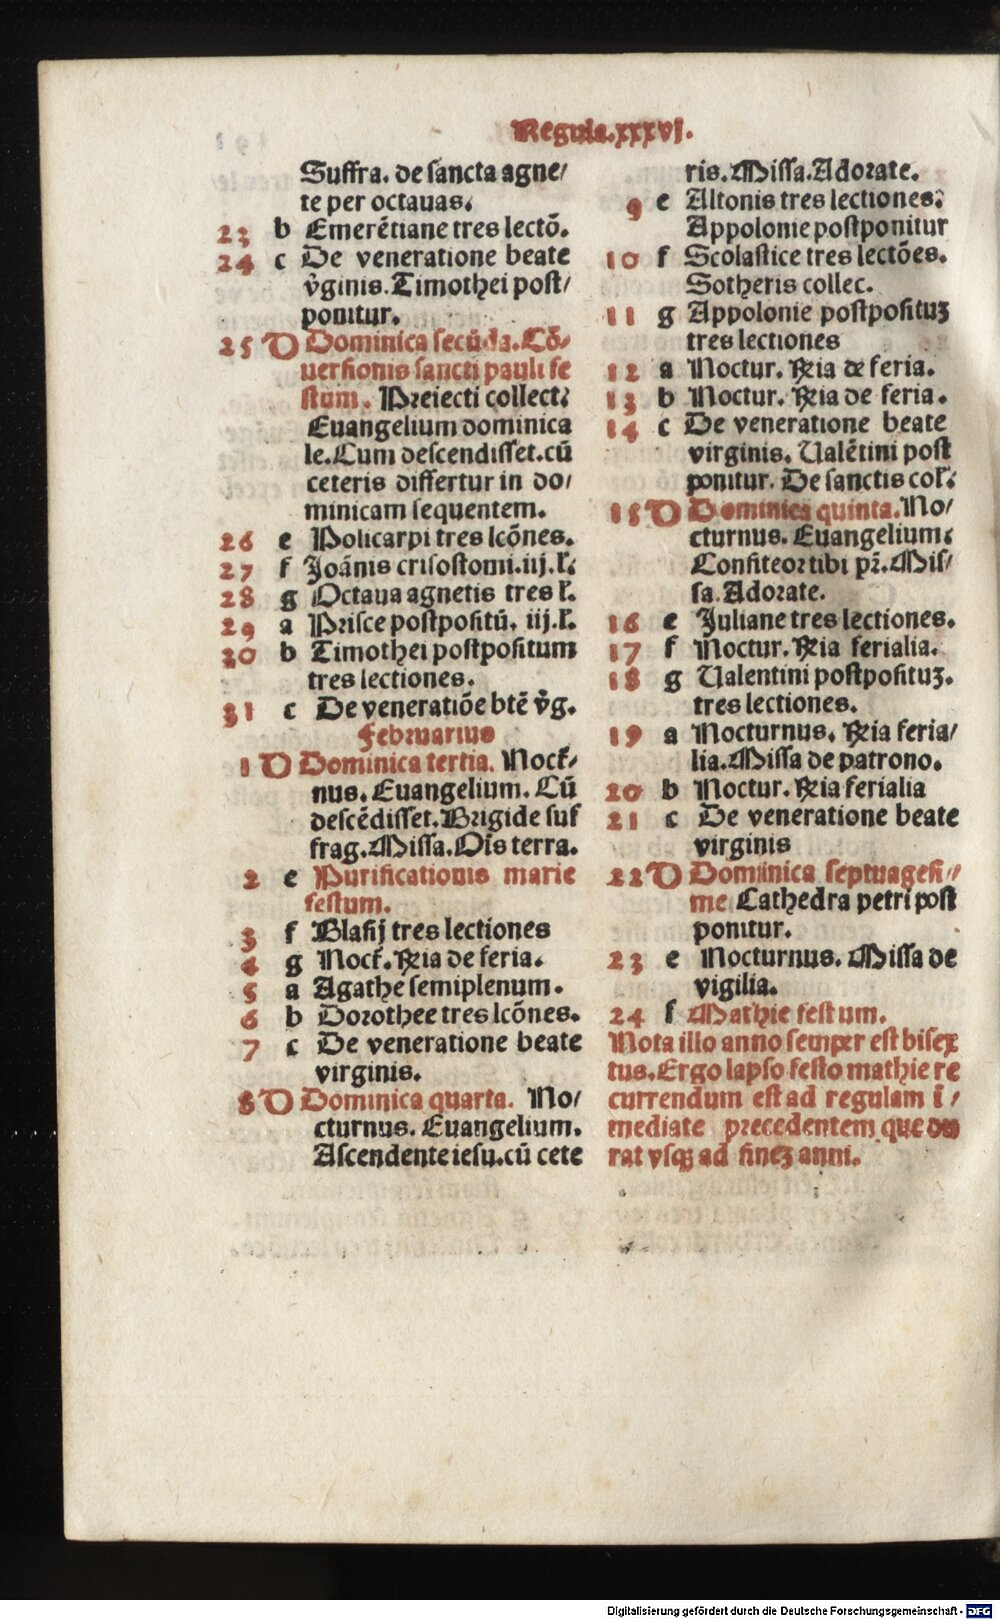 Regula.xxxvj.
Suffra. de sancta agne/
te per octauas.
23 b Emerētiane tres lectō.
24 c De veneratione beate
v̾ginis. Timothei post/
ponitur.
25 D Dominica secūda. Cō/
uersionis sancti pauli fe
stum. Preiecti collect:
Euangelium dominica
le. Cum descendisset. cū
ceteris differtur in do/
minicam sequentem.
26 e Policarpi tres lcōnes.
27 f Joānis crisostomi. iij. l̄:
28 g Octaua agnetis tres l̄.
29 a Prisce postpositū. iij. l̄.
30 b Timothei postpositum
tres lectiones.
31 c De veneratiōe btē v̾g.
Februarius
1 D Dominica tertia. Noct̄/
nus. Euangelium. Cū
descēdisset. Brigide suf
frag. Missa. Oīs terra.
2 e Purificationis marie
festum.
3 f Blasij tres lectiones
4 g Noct̄. R̄ia de feria.
5 a Agathe semiplenum.
6 b Dorothee tres lcōnes.
7 c De veneratione beate
virginis.
8 D Dominica quarta. No/
cturnus. Euangelium.
Ascendente iesu. cū cete
ris. Missa. Adorate.
9 e Altonis tres lectiones:
Appolonie postponitur
10 f Scolastice tres lectōes.
Sotheris collec.
11 g Appolonie postposituꝫ
tres lectiones
12 a Noctur. R̄ia de feria.
13 b Noctur. R̄ia de feria.
14 c De veneratione beate
virginis. Ualētini post
ponitur. De sanctis col̄:
15 D Dominica quinta. No/
cturnus. Euangelium:
Confiteor tibi pr̄. Mis/
sa. Adorate.
16 e Juliane tres lectiones.
17 f Noctur. R̄ia ferialia.
18 g Ualentini postposituꝫ.
tres lectiones.
19 a Nocturnus. R̄ia feria/
lia. Missa de patrono.
20 b Noctur. R̄ia ferialia
21 c De veneratione beate
virginis
22 D Dominica septuagesi/
me. Cathedra petri post
ponitur.
23 e Nocturnus. Missa de
vigilia.
24 f Mathie festum.
Nota illo anno semper est bisex
tus. Ergo lapso festo mathie re
currendum est ad regulam ī/
mediate precedentem que du
rat vsqꝫ ad fineꝫ anni.
Digitalisierung gefördert durch die Deutsche Forschungsgemeinschaft - DFG